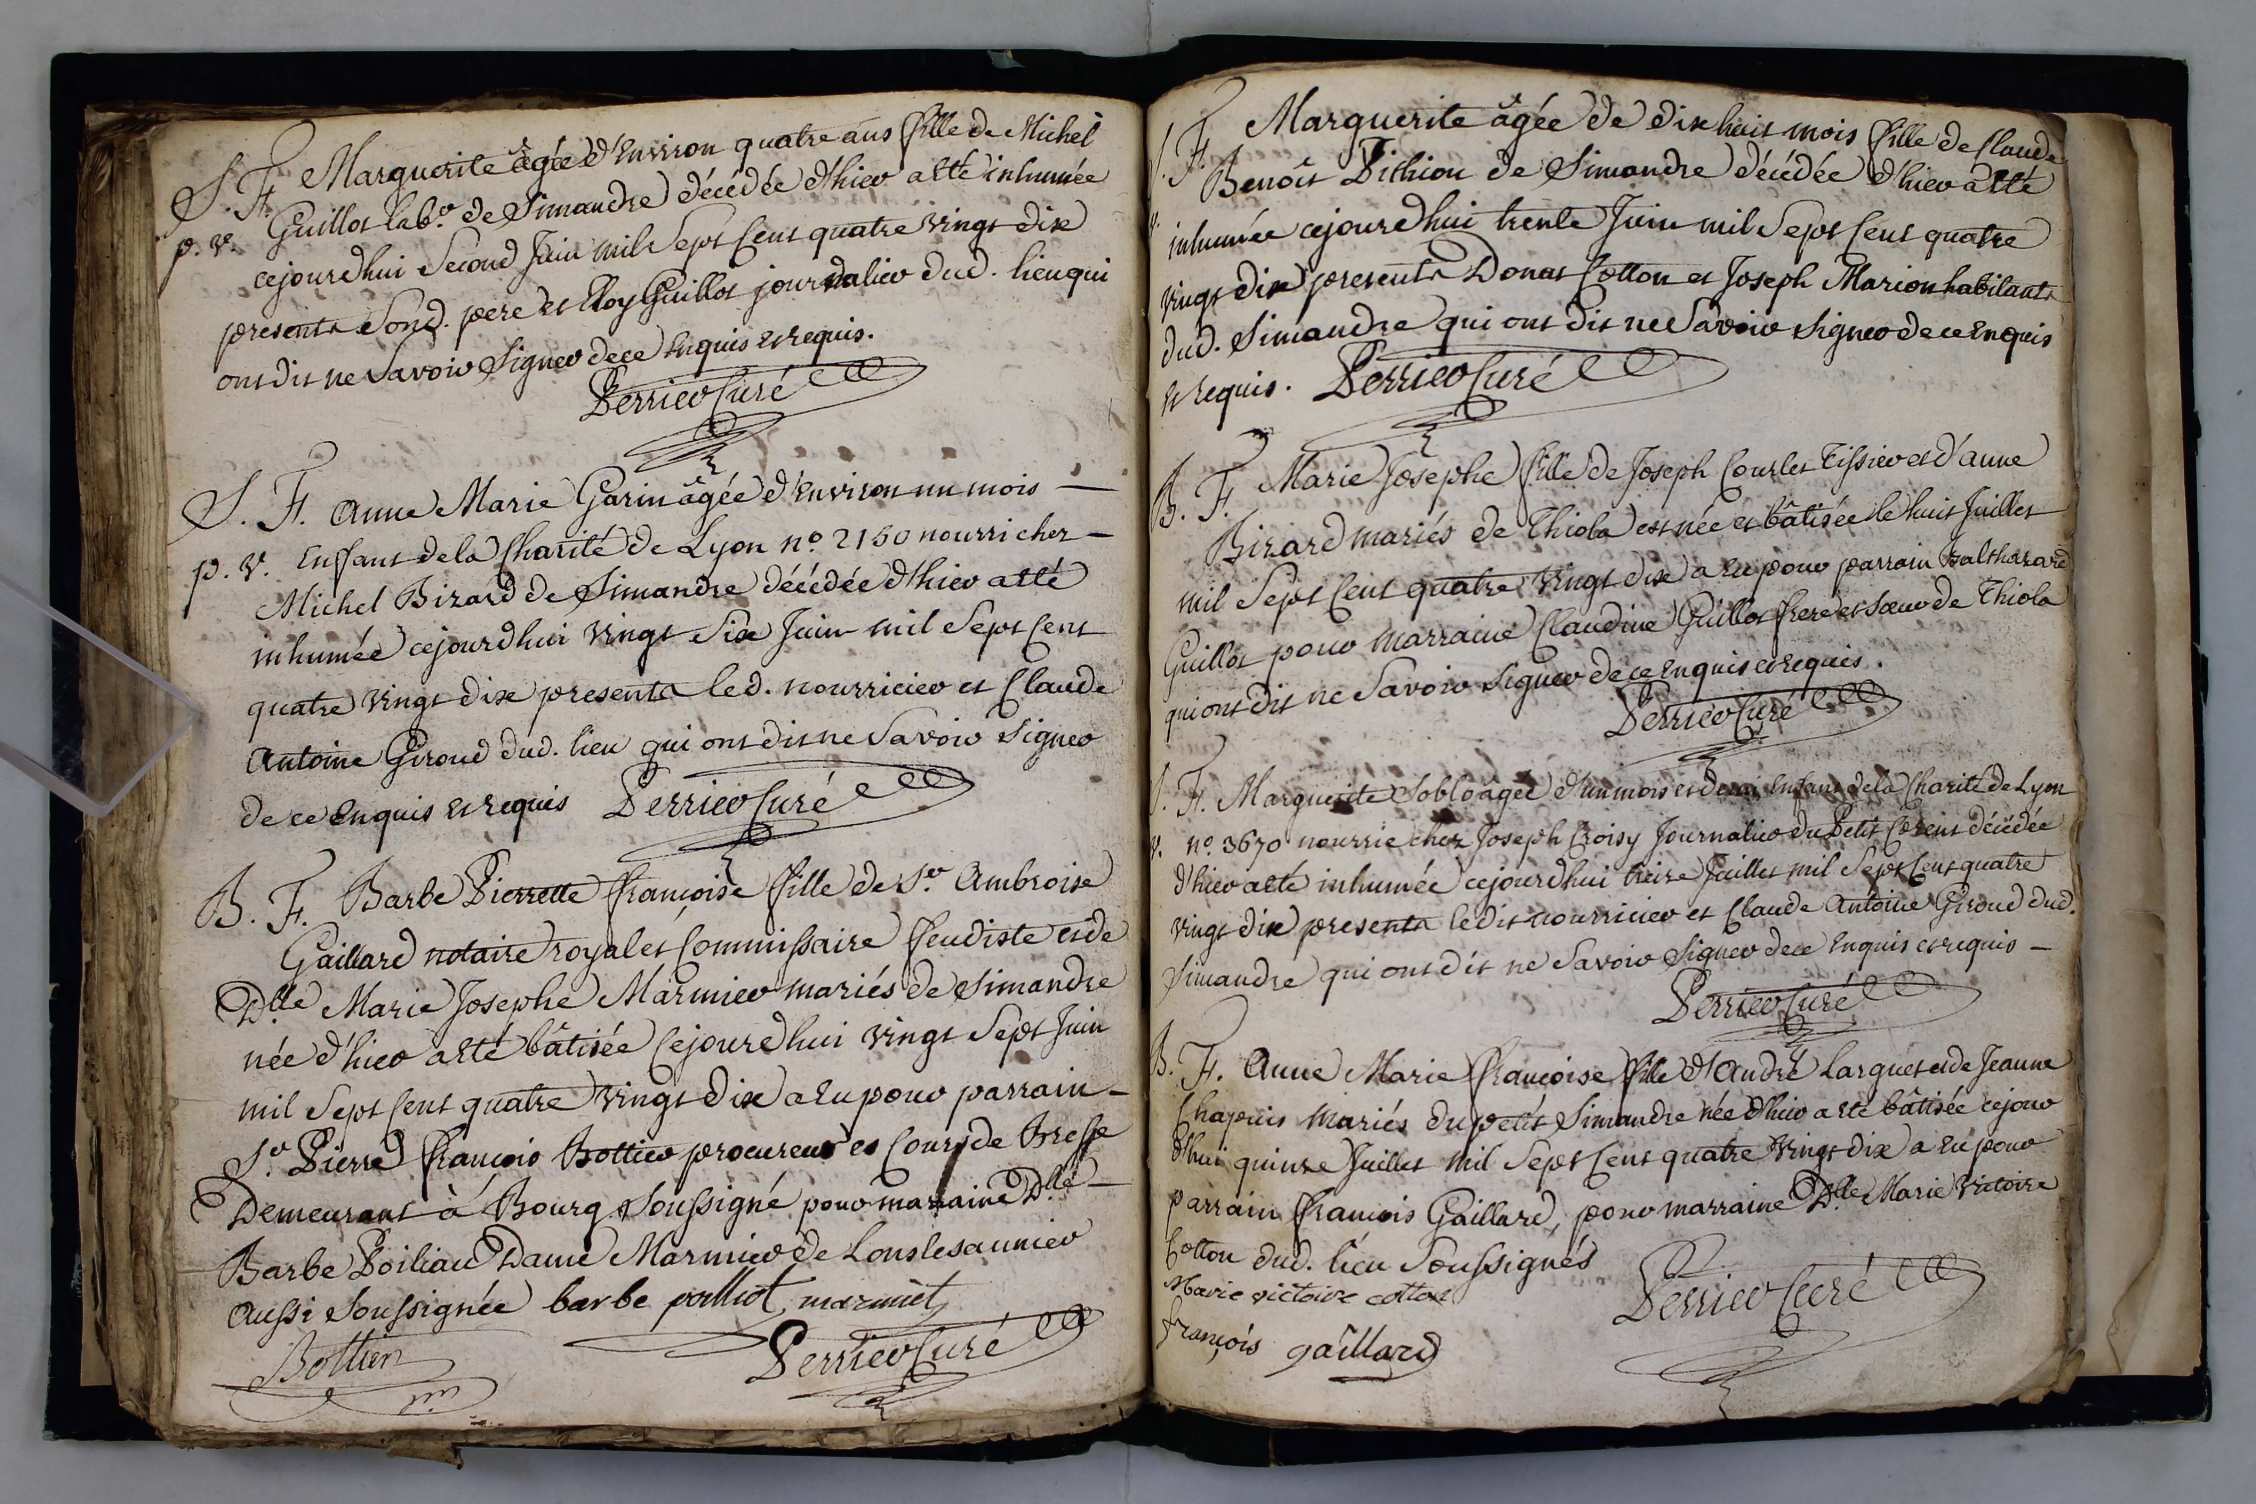 S. F. Marguerite âgée d'Environ quatre ans fille de Michel
p. v. Guillot lab.r de Simandre décédée d'hier a Eté inhumée
cejourdhui Second Juin mil Sept Cent quatre vingt dix
presents Sond. pere et Eloy Guillot journalier dud. lieu qui
ont dit ne Savoir Signer de ce Enquis et requis.
Perrier Curé
S. F. Anne Marie Garin âgée d'Environ un mois —
p. v. Enfant de la Charité de Lyon n.o 2150 nourri chez —
Michel Bizard de Simandre décédée d'hier a Eté
inhumée cejourdhui vingt Six Juin mil Sept Cent
quatre vingt dix presents led. nourricier et Claude
Antoine Giroud dud. lieu qui ont dit ne Savoir Signer
de ce Enquis et requis Perrier Curé
B. F. Barbe Pierrette françoise fille de S.r Ambroise
Gaillard notaire royal et Commissaire feudiste et de
D.lle Marie Josephe Marmier mariés de Simandre
née d'hier a Eté bâtisée Cejourdhui vingt Sept Juin
mil Sept Cent quatre vingt dix a Eu pour parrain —
S.r Pierre françois Bottier procureur es Cours de Bresse
Demeurant à Bourg Soussigné pour marraine D.lle —
Barbe Poiliau Dame Marmier de Lonslesaunier
aussi Soussignée barbe pailliot marmiet
Bottier Perrier Curé
S. F. Marguerite âgée de dix huit mois fille de Claude
Benoît Pithiou de Simandre décédée d'hier a Eté
v. inhumée cejourdhui trente Juin mil Sept Cent quatre
vingt dix presents Donat Cotton et Joseph Marion habitants
dud. Simandre qui ont dit ne Savoir Signer de ce Enquis
et requis. Perrier Curé
B. F. Marie Josephe fille de Joseph Courlet Tissier et d'anne
Bizard mariés de Thiola est née et bâtisée le huit Juillet
mil Sept Cent quatre vingt dix a Eu pour parrain Balthazard
Guillot pour marraine Claudine Guillot frere et Sœur de Thiola
qui ont dit ne Savoir Signer de ce Enquis et requis.
Perrier Curé
S. F. Marguerite Soblo âgée d'un mois et demi Enfant de la Charité de Lyon
v. n.o 3670 nourrie chez Joseph Croisy Journalier du Petit Corent décédée
d'hier a Eté inhumée cejourdhui treize Juillet mil Sept Cent quatre
vingt dix presents ledit nourricier et Claude Antoine Giroud dud.
Simandre qui ont dit ne Savoir Signer de ce Enquis et requis —
Perrier Curé
B. F. Anne Marie françoise fille d'André Larguet et de Jeanne
Chapuis mariés du petit Simandre née d'hier a Eté bâtisée cejour
d'hui quinze Juillet mil Sept Cent quatre vingt dix a Eu pour
parrain françois Gaillard, pour marraine D.lle Marie Victoire
Cotton dud. lieu Soussignés
Marie victoire cotton Perrier Curé
françois gaillard